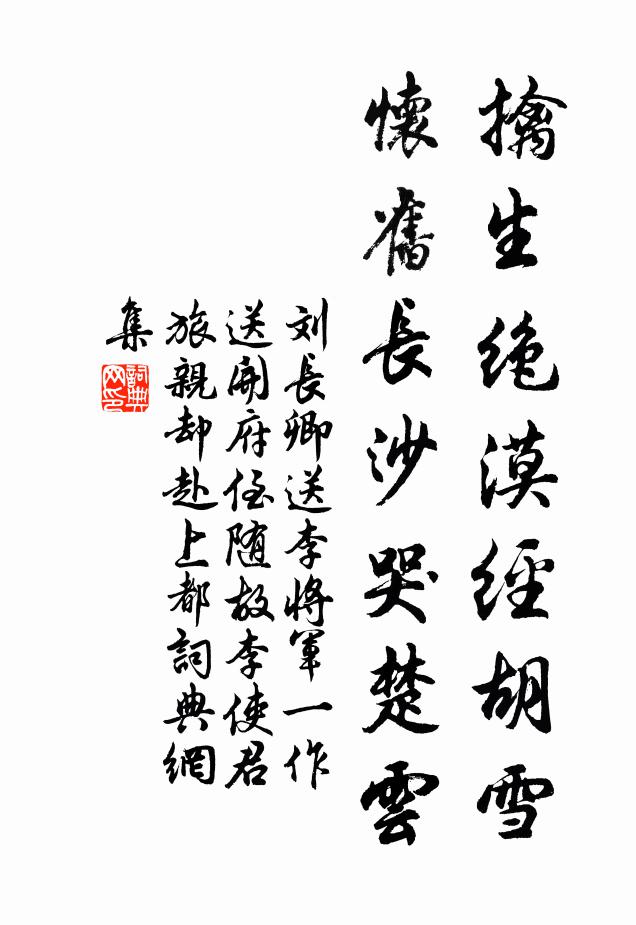 擒生絶漠經胡雪
懷舊長沙哭楚雲
刘長卿送李將軍一作
送開府侄随故李使君
旅親却赴上都詞典網
集
詞典
网印